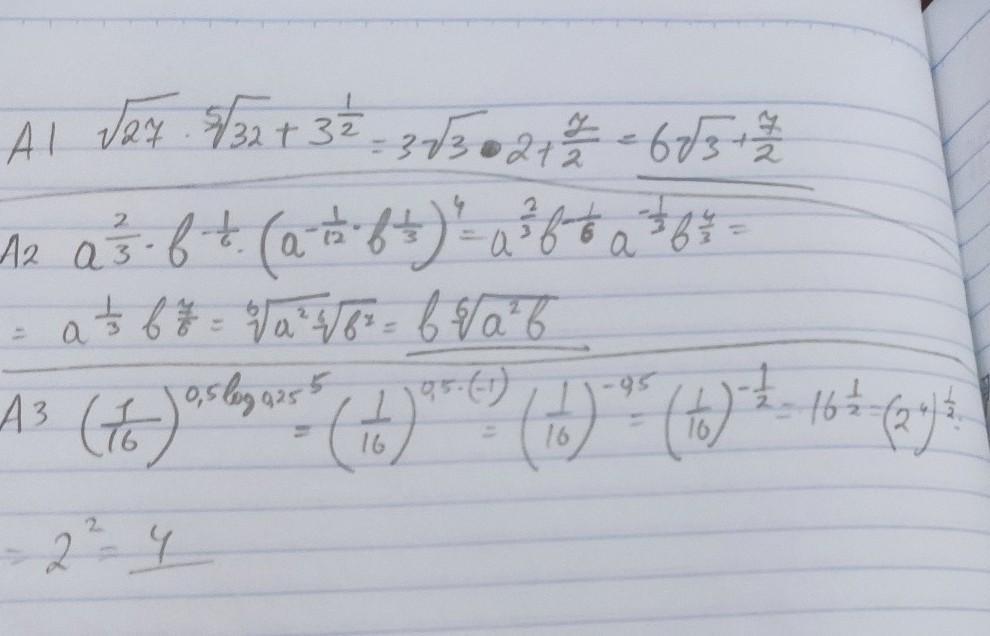 A1 √27 · ⁵√32 + 3 1/2 = 3√3 · 2 + 7/2 = 6√3 + 7/2
A2 a^(2/3) · b^(-1/6) · (a^(-1/12) · b^(1/3))^4 = a^(2/3) b^(-1/6) a^(-1/3) b^(4/3) =
= a^(1/3) b^(7/6) = ⁶√a² ⁶√b⁷ = b ⁶√a²b
A3 (1/16)^(0,5 log 0,25 5) = (1/16)^(0,5·(-1)) = (1/16)^(-0,5) = (1/16)^(-1/2) = 16^(1/2) = (2⁴)^(1/2) =
= 2² = 4